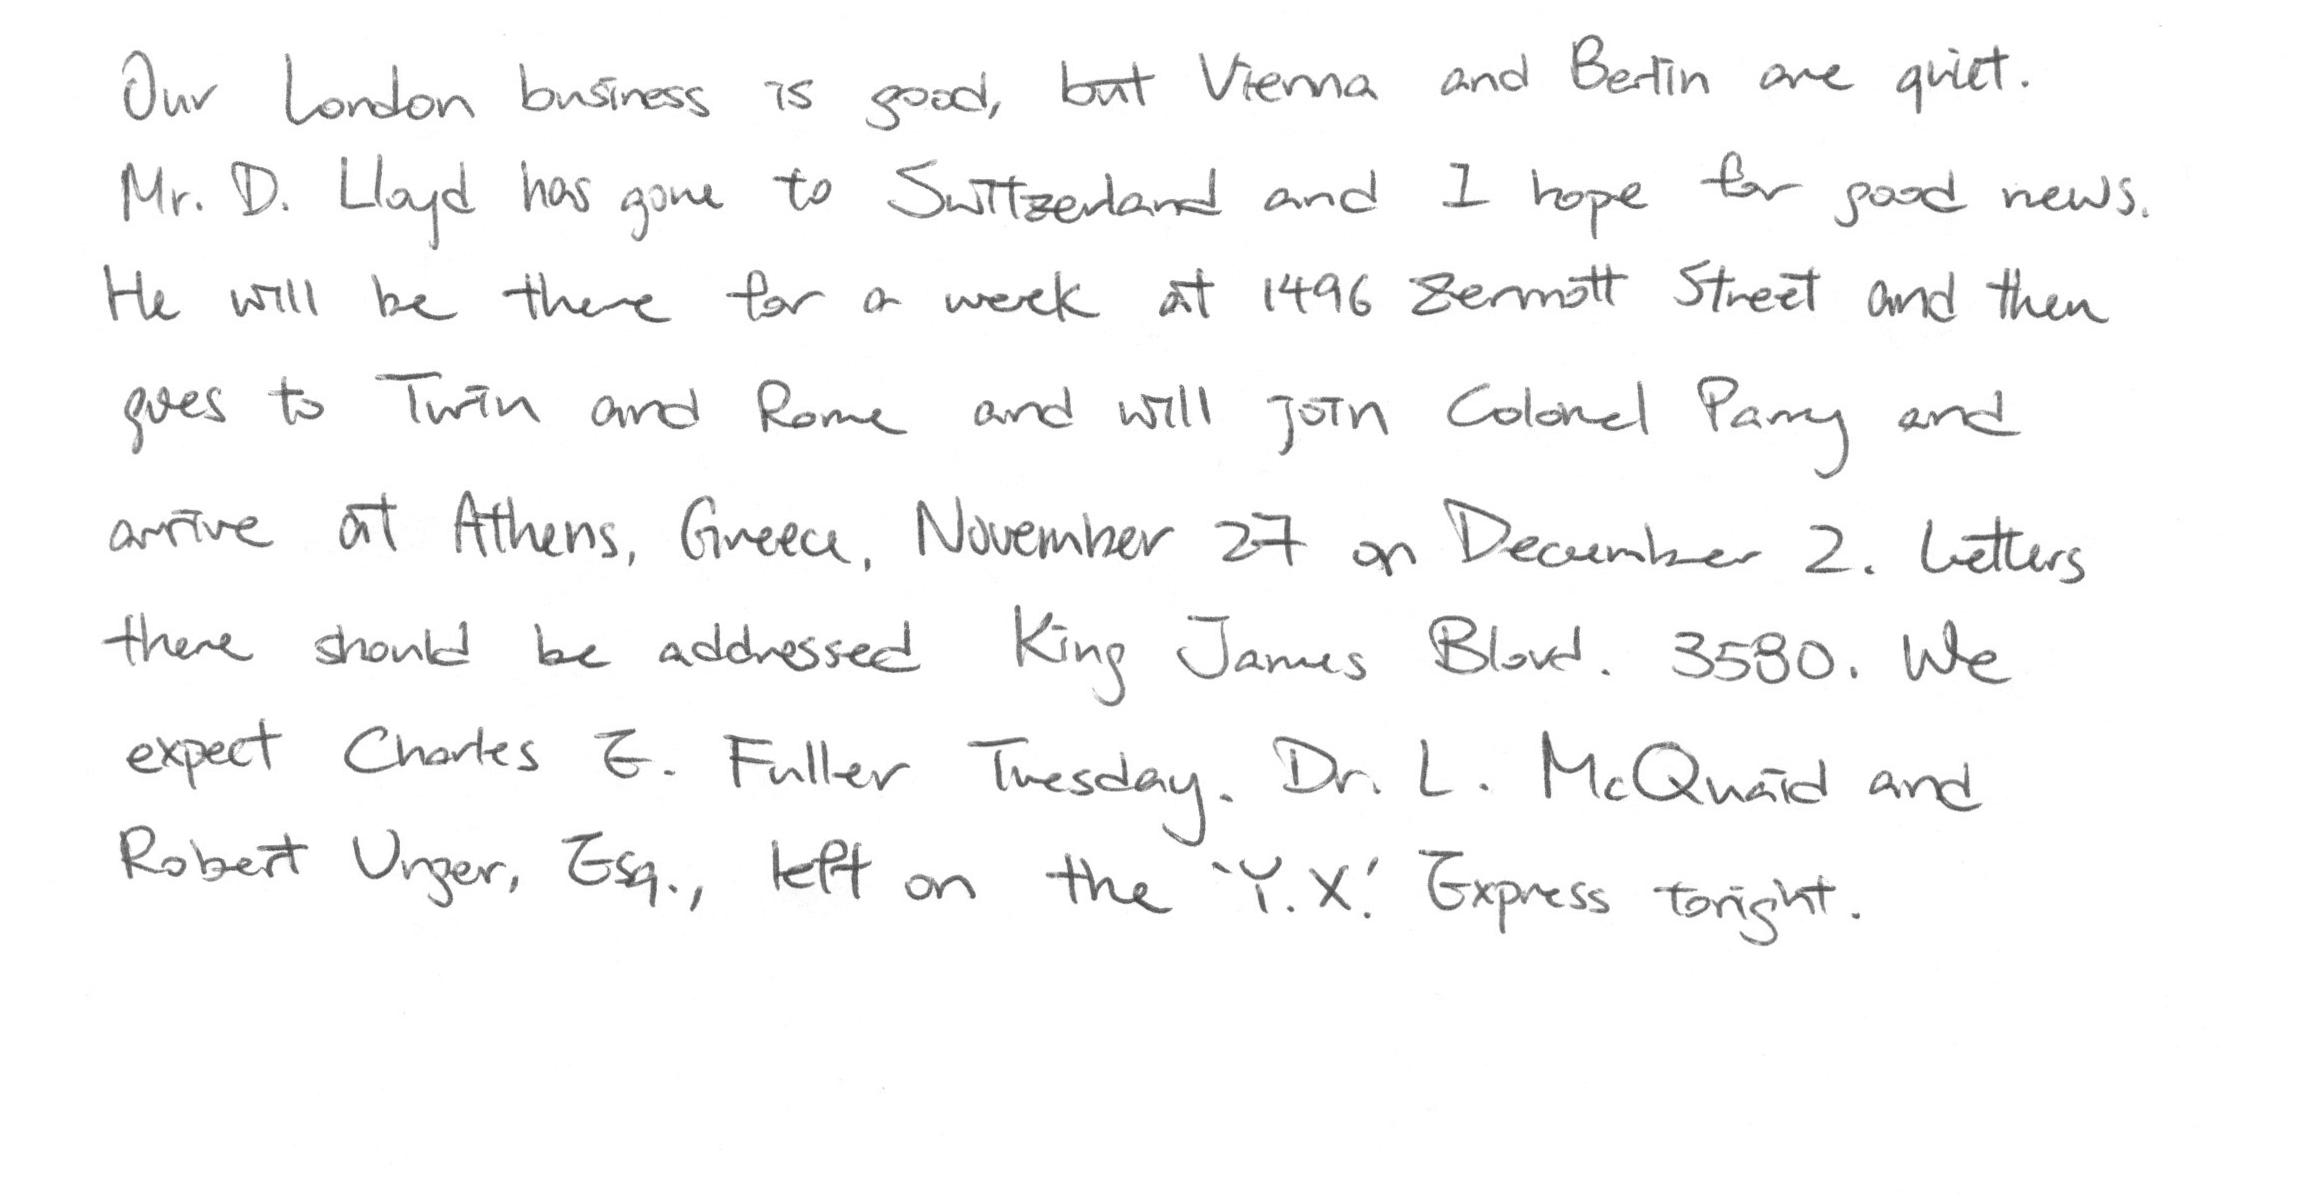 Our London business is good, but Vienna and Berlin are quiet.
Mr. D. Lloyd has gone to Switzerland and I hope for good news.
He will be there for a week at 1496 Zermott Street and then
goes to Turin and Rome and will join Colonel Parry and
arrive at Athens, Greece, November 27 or December 2. Letters
there should be addressed King James Blovd. 3580. We
expect Charles E. Fuller Tuesday. Dr. L. McQuaid and
Robert Unger, Esq., left on the 'Y.X.' Express tonight.